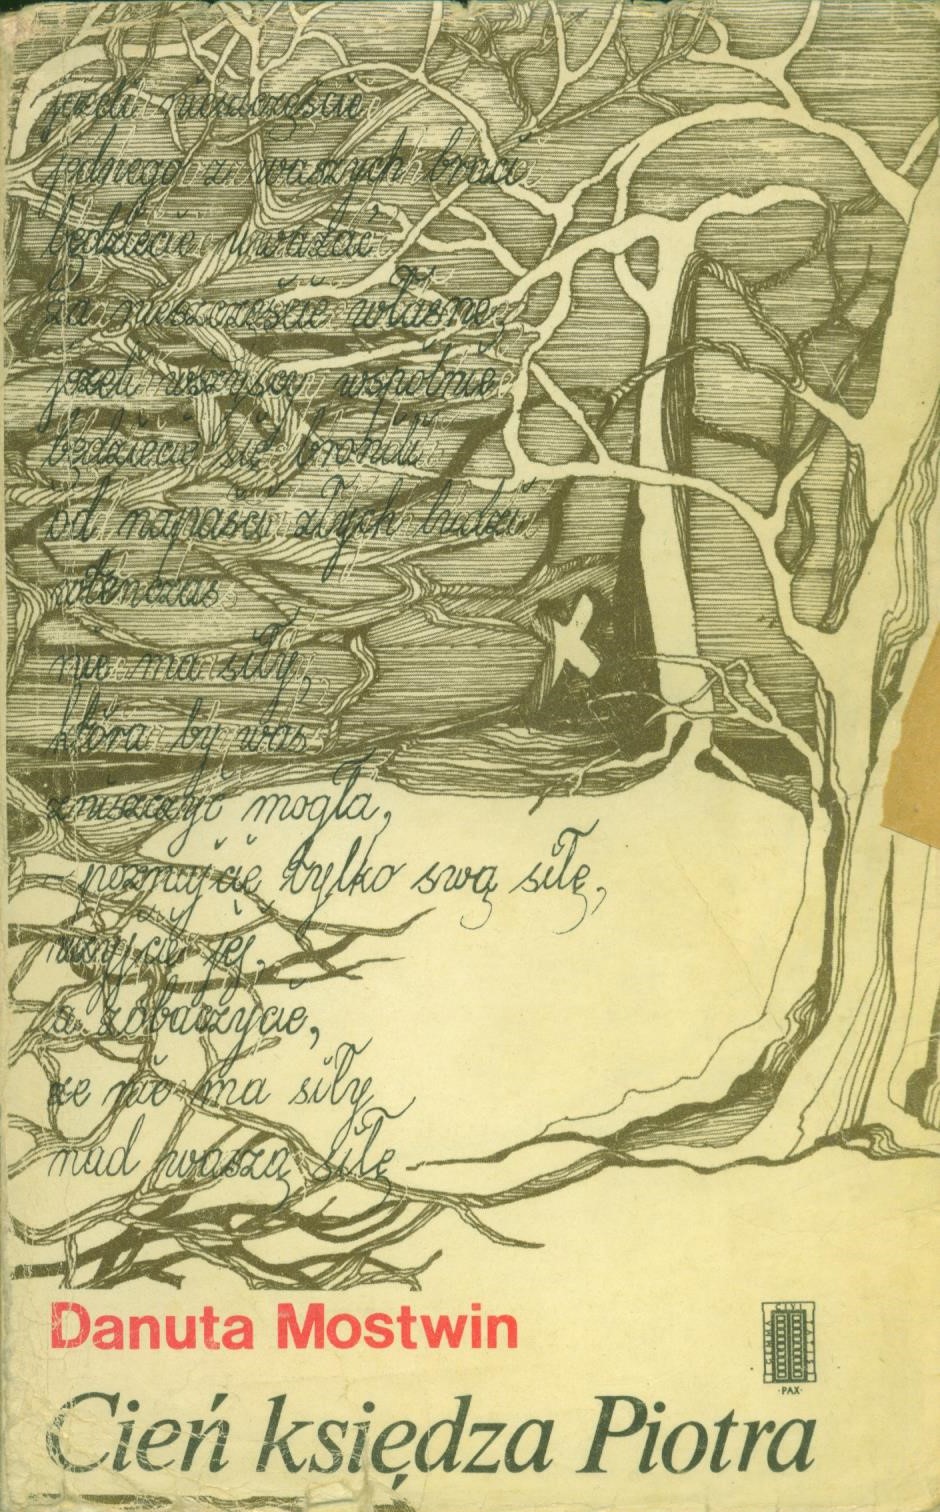 jeżeli nieszczęście
jednego z waszych braci
będziecie uważać
za nieszczęście własne,
jeżeli wszyscy wspólnie
będziecie się bronili
od napaści złych ludzi
wtenczas
nie ma siły,
która by was
zniszczyć mogła,
poznajcie tylko swą siłę,
użyjcie jej,
a zobaczycie,
że nie ma siły
nad waszą siłę
Danuta Mostwin
CIVI
PAX
Cień księdza Piotra